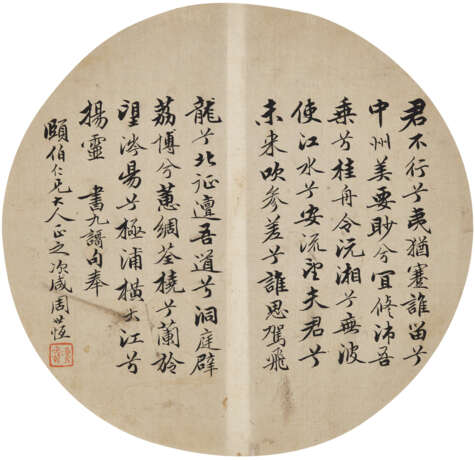 君不行兮夷猶蹇誰留兮
中州美要眇兮宜修沛吾
乘兮桂舟令沅湘兮無波
使江水兮安流望夫君兮
未來吹參差兮誰思駕飛
龍兮北征邅吾道兮洞庭薜
荔博兮蕙綢荃橈兮蘭旌
望涔昜兮極浦橫大江兮
揚靈 書九謌句奉
頤伯仁兄大人正之 周世恆